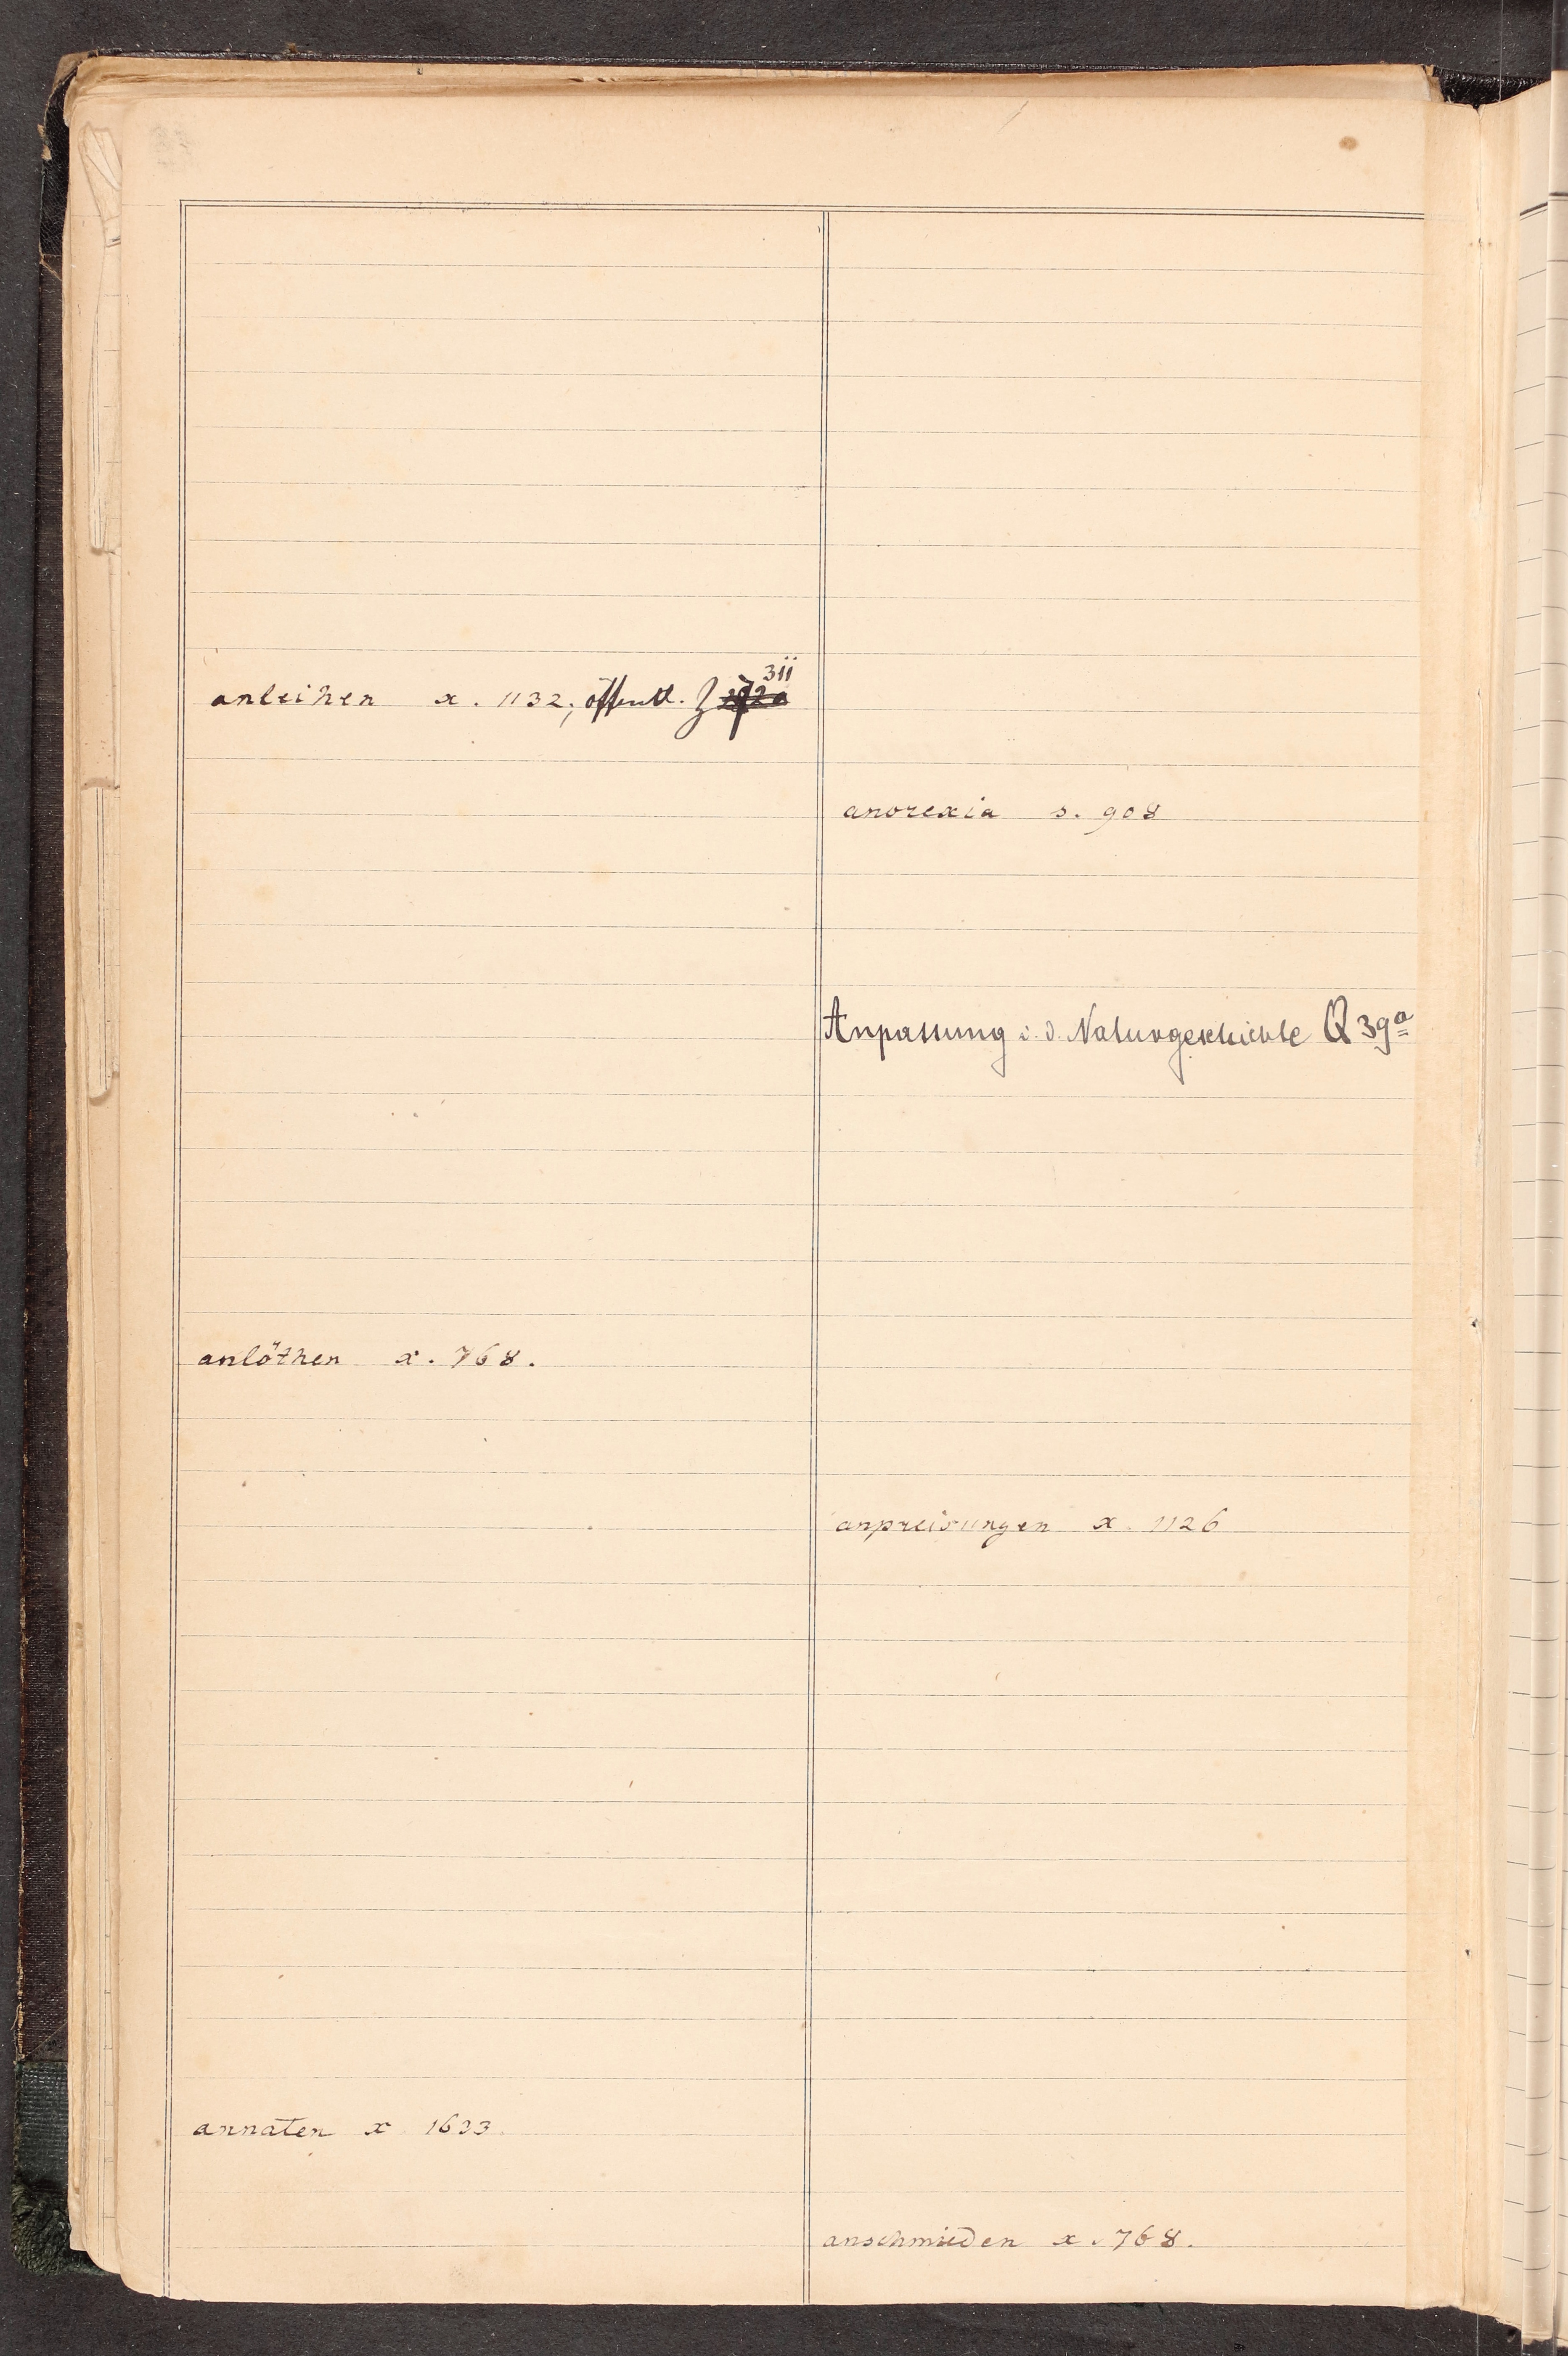 anleihen x. 1132; öffentl. Z 311
anlöthen x. 768.
annaten x 1633
anorexia s. 908
Anpassung i. d. Naturgeschichte Q 39a
anpreisungen x. 1126
anschmieden x. 768.